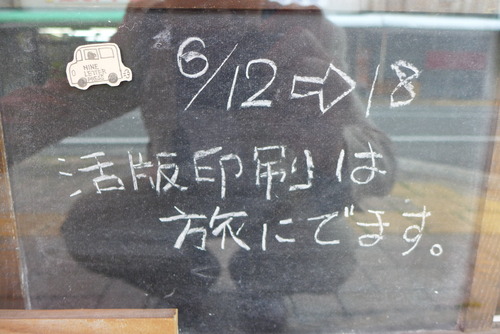 NINE
LETTER
PRESS
6/12⇨18
活版印刷は
旅にでます。